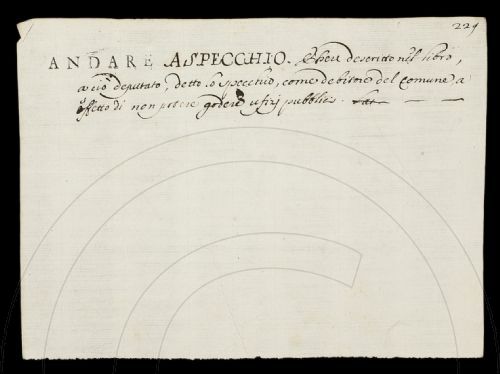 229
ANDARE A SPECCHIO. Esser descritto nel libro,
a ciò deputato, detto lo specchio, come debitore del comune a
effetto di non potere godere ufizj pubblici.